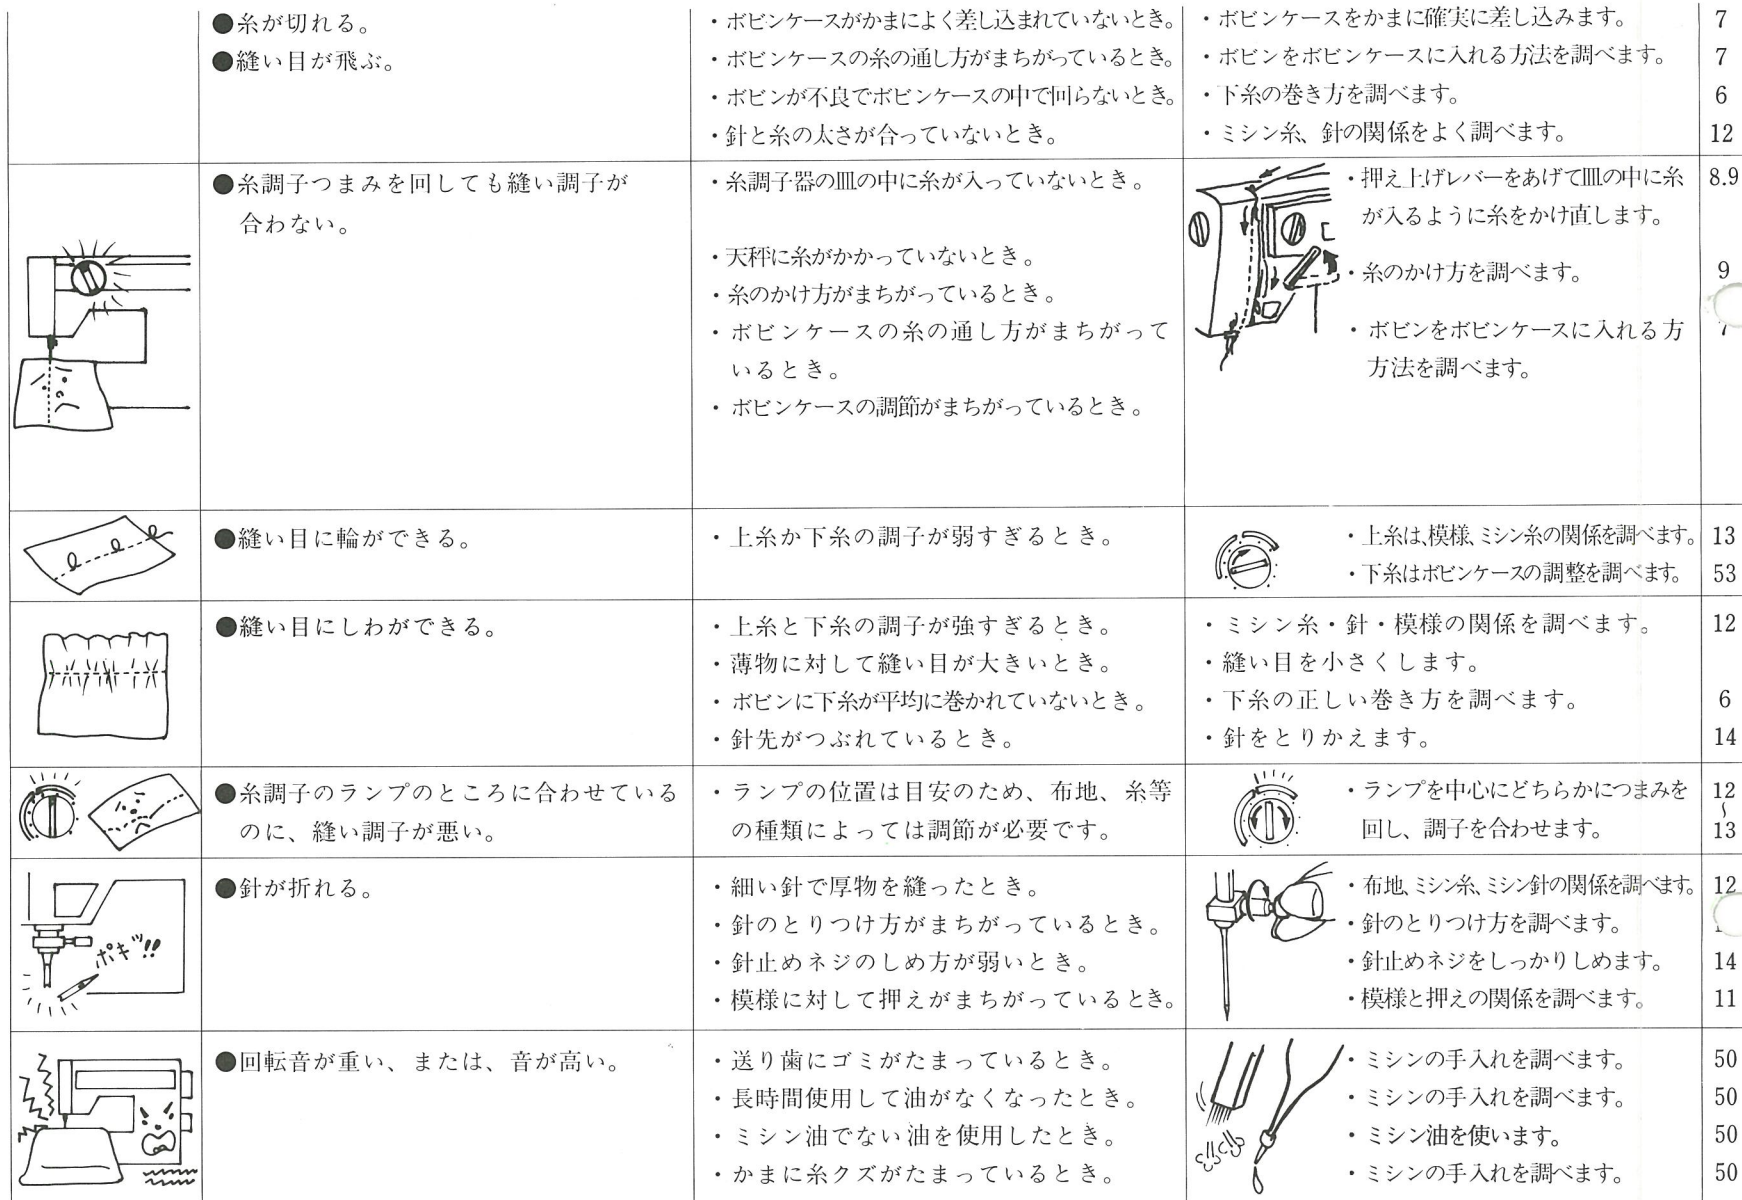 ●糸が切れる。
●縫い目が飛ぶ。
・ボビンケースがかまによく差し込まれていないとき。
・ボビンケースの糸の通し方がまちがっているとき。
・ボビンが不良でボビンケースの中で回らないとき。
・針と糸の太さが合っていないとき。
・ボビンケースをかまに確実に差し込みます。 7
・ボビンをボビンケースに入れる方法を調べます。 7
・下糸の巻き方を調べます。 6
・ミシン糸、針の関係をよく調べます。 12
●糸調子つまみを回しても縫い調子が
合わない。
・糸調子器の皿の中に糸が入っていないとき。
・天秤に糸がかかっていないとき。
・糸のかけ方がまちがっているとき。
・ボビンケースの糸の通し方がまちがって
いるとき。
・ボビンケースの調節がまちがっているとき。
・押え上げレバーをあげて皿の中に糸 8.9
が入るように糸をかけ直します。
・糸のかけ方を調べます。 9
・ボビンをボビンケースに入れる方 7
方法を調べます。
●縫い目に輪ができる。
・上糸か下糸の調子が弱すぎるとき。
・上糸は、模様、ミシン糸の関係を調べます。 13
・下糸はボビンケースの調整を調べます。 53
●縫い目にしわができる。
・上糸と下糸の調子が強すぎるとき。
・薄物に対して縫い目が大きいとき。
・ボビンに下糸が平均に巻かれていないとき。
・針先がつぶれているとき。
・ミシン糸・針・模様の関係を調べます。 12
・縫い目を小さくします。
・下糸の正しい巻き方を調べます。 6
・針をとりかえます。 14
●糸調子のランプのところに合わせている
のに、縫い調子が悪い。
・ランプの位置は目安のため、布地、糸等
の種類によっては調節が必要です。
・ランプを中心にどちらかにつまみを 12
〜
回し、調子を合わせます。 13
ポキッ!!
●針が折れる。
・細い針で厚物を縫ったとき。
・針のとりつけ方がまちがっているとき。
・針止めネジのしめ方が弱いとき。
・模様に対して押えがまちがっているとき。
・布地、ミシン糸、ミシン針の関係を調べます。 12
・針のとりつけ方を調べます。
・針止めネジをしっかりしめます。 14
・模様と押えの関係を調べます。 11
●回転音が重い、または、音が高い。
・送り歯にゴミがたまっているとき。
・長時間使用して油がなくなったとき。
・ミシン油でない油を使用したとき。
・かまに糸クズがたまっているとき。
・ミシンの手入れを調べます。 50
・ミシンの手入れを調べます。 50
・ミシン油を使います。 50
・ミシンの手入れを調べます。 50